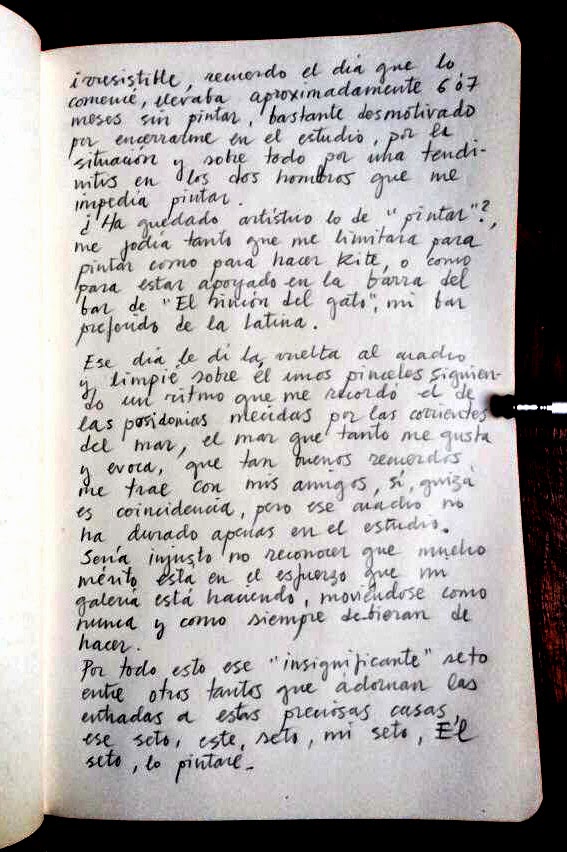 irresistible, recuerdo el día que lo
comencé, llevaba aproximadamente 6 ó 7
meses sin pintar, bastante desmotivado
por encerrarme en el estudio, por la
situación y sobre todo por una tendi-
nitis en los dos hombros que me
impedía pintar.
¿Ha quedado artístico lo de "pintar"?,
me jodía tanto que me limitara para
pintar como para hacer Kite, o como
para estar apoyado en la barra del
bar de "El rincón del gato", mi bar
preferido de la Latina.
Ese día le di la vuelta al cuadro
y limpié sobre él unos pinceles siguien-
do un ritmo que me recordó el de
las posidonias mecidas por las corrientes
del mar, el mar que tanto me gusta
y evoca, que tan buenos recuerdos
me trae con mis amigos, sí, quizá
es coincidencia, pero ese cuadro no
ha durado apenas en el estudio.
Sería injusto no reconocer que mucho
mérito está en el esfuerzo que mi
galería está haciendo, moviéndose como
nunca y como siempre debieran de
hacer.
Por todo esto ese "insignificante" seto
entre otros tantos que adornan las
entradas a estas preciosas casas,
ese seto, este, seto, mi seto, El
seto, lo pintaré_